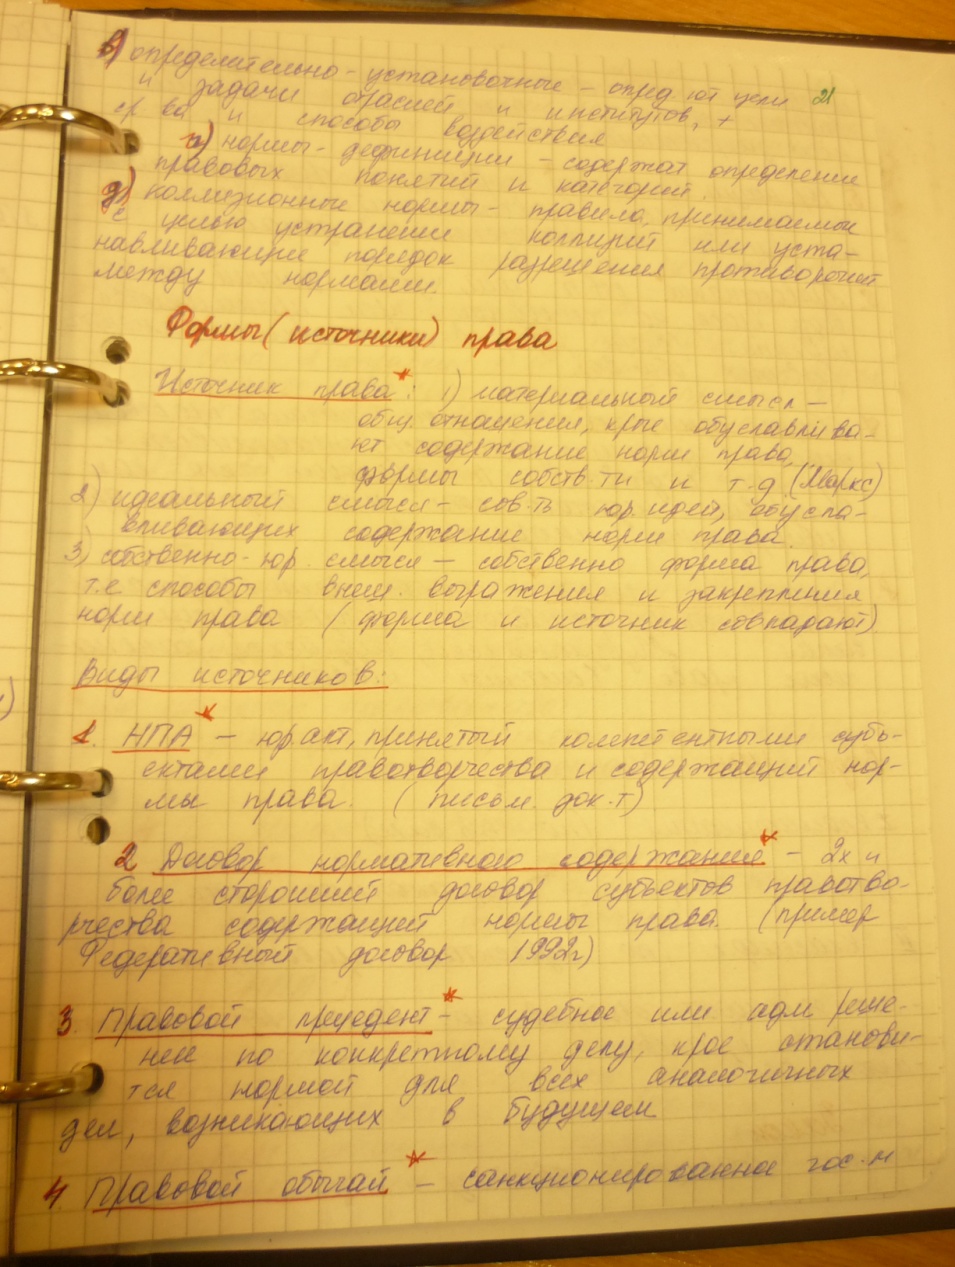 в) определительно-установочные - опред. ют цели 21
и задачи отраслей и институтов, +
ср ва и способы воздействия
г) нормы-дефиниции - содержат определение
правовых понятий и категорий.
д) коллизионные нормы - правила, принимаемые
с целью устранения коллизий или уста-
навливающие порядок разрешения противоречий
между нормами.
Формы (источники) права
Источник права*: 1) материальный смысл -
общ. отношения, крые обуславлива-
ют содержание норм права,
формы собств-ти и т.д. (Маркс)
2) идеальный смысл - сов-ть юр. идей, обусла-
вливающих содержание норм права.
3) собственно-юр. смысл - собственно форма права,
т.е способы внеш. выражения и закрепления
норм права (форма и источник совпадают)
Виды источников:
1. НПА* - юр. акт, принятый компетентными субъ-
ектами правотворчества и содержащий нор-
мы права. (письм. док-т)
2 Договор нормативного содержания* - 2х и
более сторонний договор субъектов правотво-
рчества содержащий нормы права. (пример
Федеративный договор 1992г)
3. Правовой прецедент* - судебное или адм реше-
ние по конкретному делу, крое станови-
тся нормой для всех аналогичных
дел, возникающих в будущем
4. Правовой обычай* - санкционированное гос-м